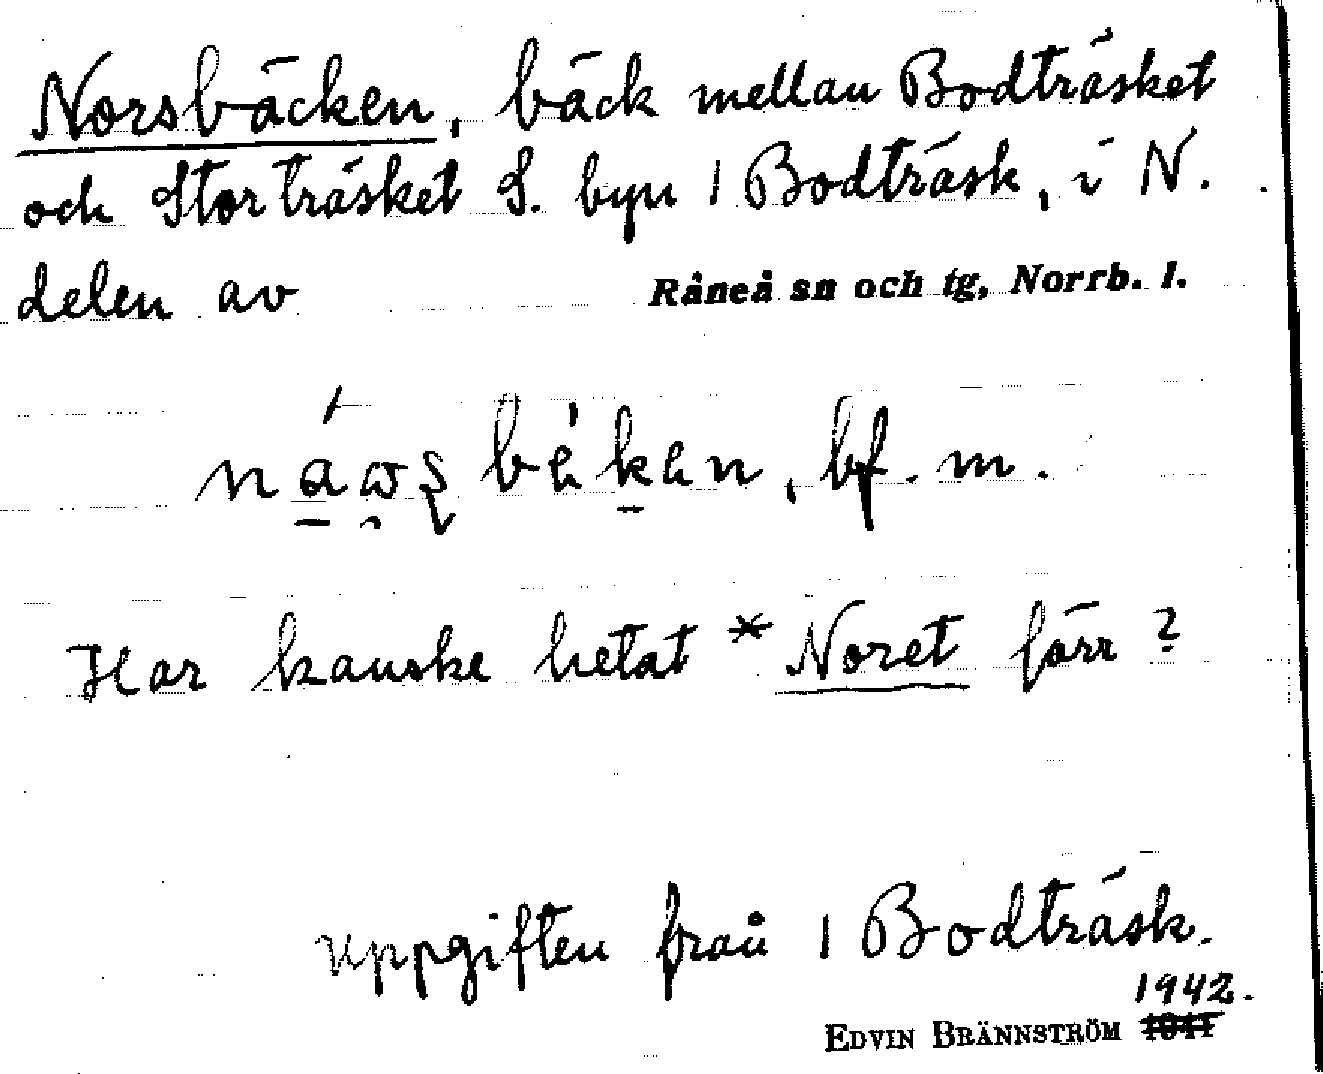 Norsbäcken, bäck mellan Bodträsket
och Storträsket S. byn 1 Bodträsk, i N.
delen av Råneå sn och tg, Norrb. l.
bf. m.
Har kanske hetat *Noret förr?
uppgiften från 1 Bodträsk.
1942.
EDVIN BRÄNNSTRÖM 1941